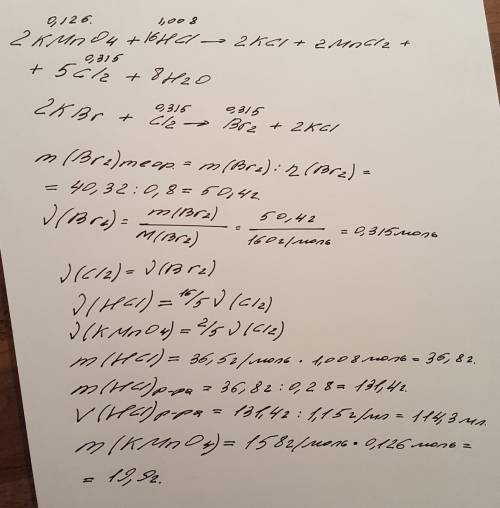 0,126. 1,008
2KMnO4 + 16HCl → 2KCl + 2MnCl2 +
0,315
+ 5Cl2 + 8H2O
0,315 0,315
2KBr + Cl2 → Br2 + 2KCl
m(Br2)теор. = m(Br2) : η(Br2) =
= 40,32 : 0,8 = 50,4г
ν(Br2) = m(Br2)/M(Br2) = 50,4г/160г/моль = 0,315моль
ν(Cl2) = ν(Br2)
ν(HCl) = 16/5 ν(Cl2)
ν(KMnO4) = 2/5 ν(Cl2)
m(HCl) = 36,5г/моль · 1,008моль = 36,8г.
m(HCl)р-ра = 36,8г : 0,28 = 131,4г.
V(HCl)р-ра = 131,4г : 1,15г/мл = 114,3мл.
m(KMnO4) = 158г/моль · 0,126моль =
= 19,9г.